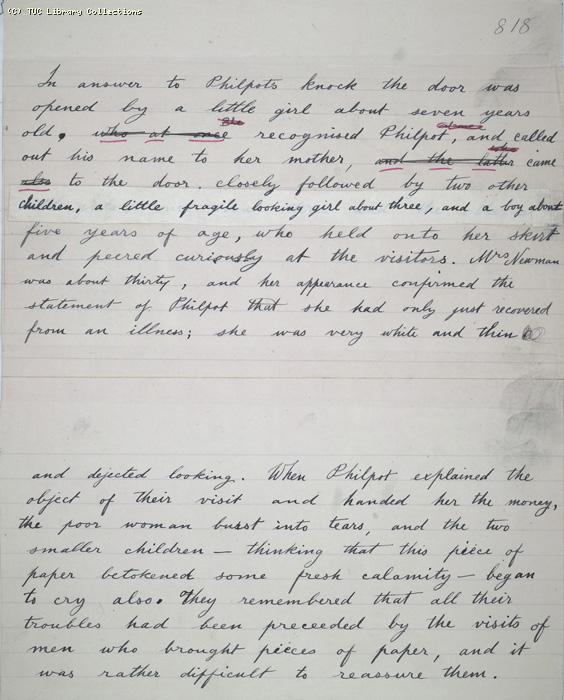 (C) TUC Library Collections
818
In answer to Philpots knock the door was
opened by a little girl about seven years
She
old. who at once recognised Philpot, and called
who
out his name to her mother, and the latter came
also to the door. closely followed by two other
children, a little fragile looking girl about three, and a boy about
five years of age, who held onto her skirt
and peered curiously at the visitors. Mrs Newman
was about thirty, and her appearance confirmed the
statement of Philpot that she had only just recovered
from an illness; she was very white and thin
and dejected looking. When Philpot explained the
object of their visit and handed her the money,
the poor woman burst into tears, and the two
smaller children — thinking that this piece of
paper betokened some fresh calamity — began
to cry also. They remembered that all their
troubles had been preceeded by the visits of
men who brought pieces of paper, and it
was rather difficult to reassure them.